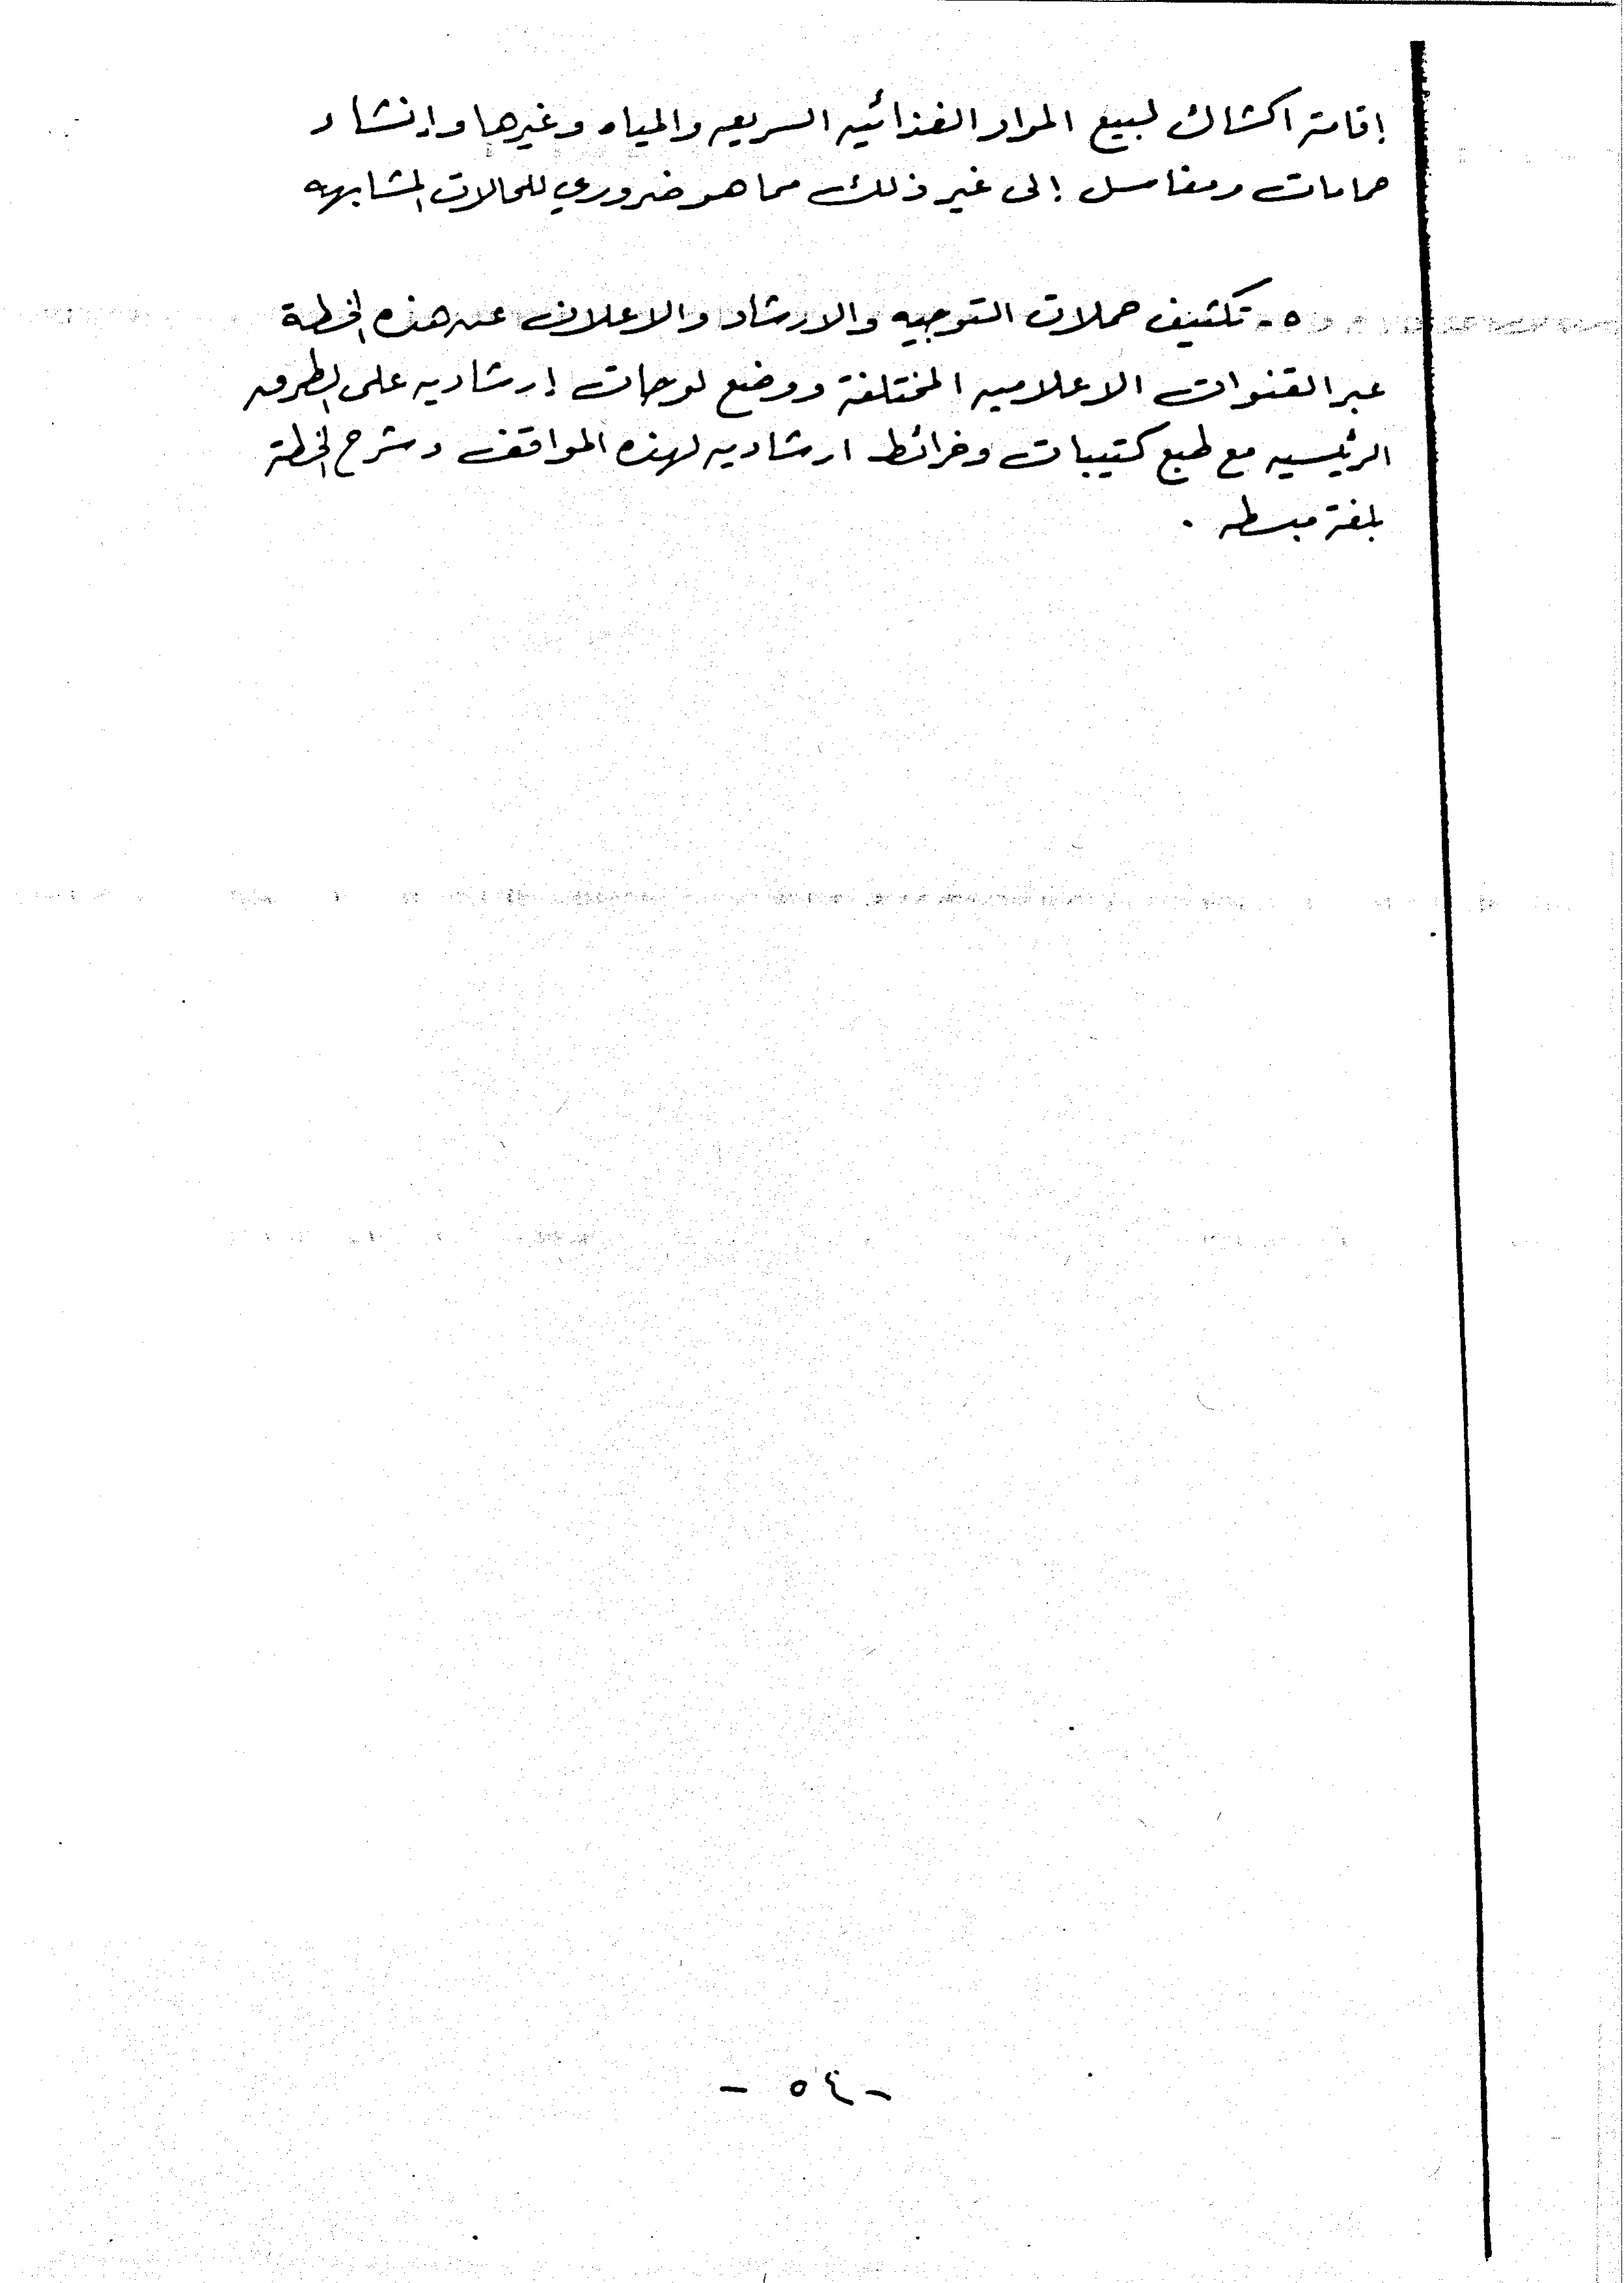 إقامة اكشاك لبيع المواد الغذائيه السريعه والمياه وغيرها وإنشاء
حمامات ومغاسل إلى غير ذلك مما هو ضروري للحالات المشابهه
٥- تكثيف حملات التوجيه والارشاد والاعلان عن هذه الخطة
عبر القنوات الاعلاميه المختلفة ووضع لوحات إرشاديه على الطرق
الرئيسيه مع طبع كتيبات وخرائط ارشاديه لهذه المواقف وشرح الخطة
بلغة مبسطه .
- ٥٤ -